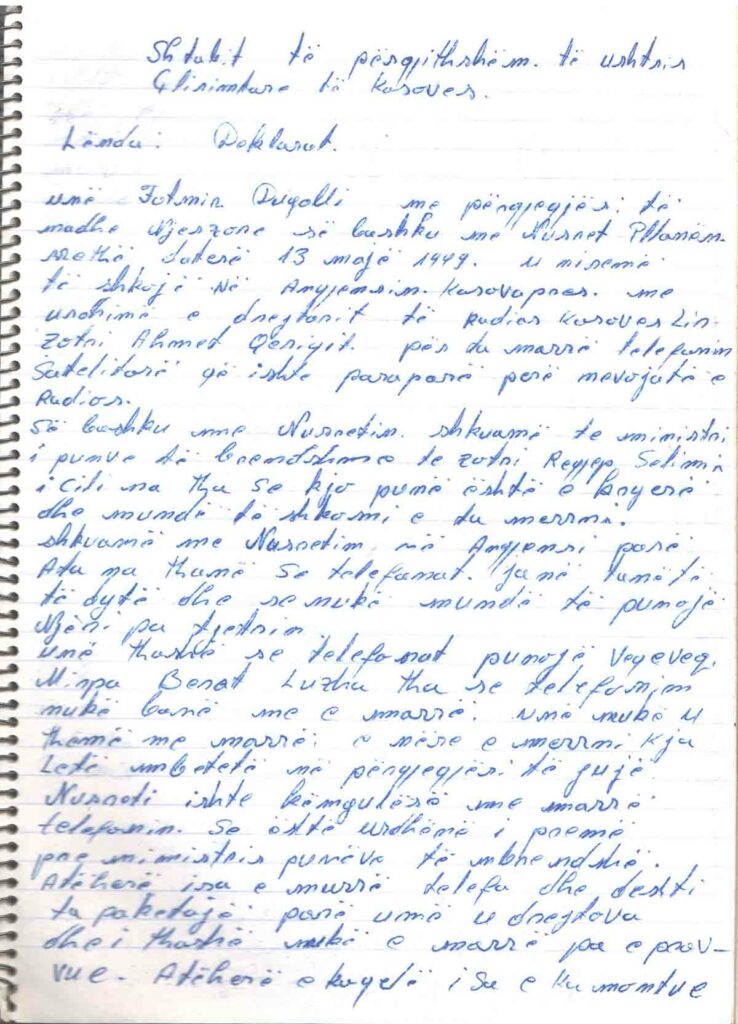 Shtabit të përgjithshëm. të ushtris
Çlirimtare të Kosoves.
Lënda: Deklarat.
unë Fatmir Dugolli me përgjegjësi të
madhe Njerzore së bashku me Nusret Pllanën.
rrethë daterë 13 majë 1999. u nisemë
të shkojë në Angjensin. Kosovapres. me
urdhimë e drejtorit të Radios Kosoves Lir.
Zotri Ahmet Qeriqit. për ta marrë telefonin
Satelitorë që ishte paraparë perë nevojatë e
Radios.
Së bashku me Nusretin. shkuamë te ministri
i punve të brendshme te zotri Rexhep Selimin
i Cili na tha se kjo punë është e kryerë
dhe mundë të shkoni e ta merrni.
shkuamë me Nusretim në Angjensi porë
Ata na thanë se telefonat. janë tanëtë
të dytë dhe se nukë mundë të punojë
Njëri pa tjetrin
unë thashë se telefonat punojë veqeveq.
Mirpa Berat Luzha tha se telefonim
nukë banë me e marrë. Unë nukë u
themë me marrë: e nëse e merrni kja
Letë mbetetë në përgjegjësi të jujë
Nusreti ishte këmgulësë me marrë
telefonin. Se është urdhënë i premë
pre ministris punëve të mbrendshë.
Atëherë isa e murrë telefo dhe deshti
ta paketojë porë umë u drejtova
dhe i thashë nukë e marrë pa e prov-
vue. Atëherë e kuqdë isa e ka montue